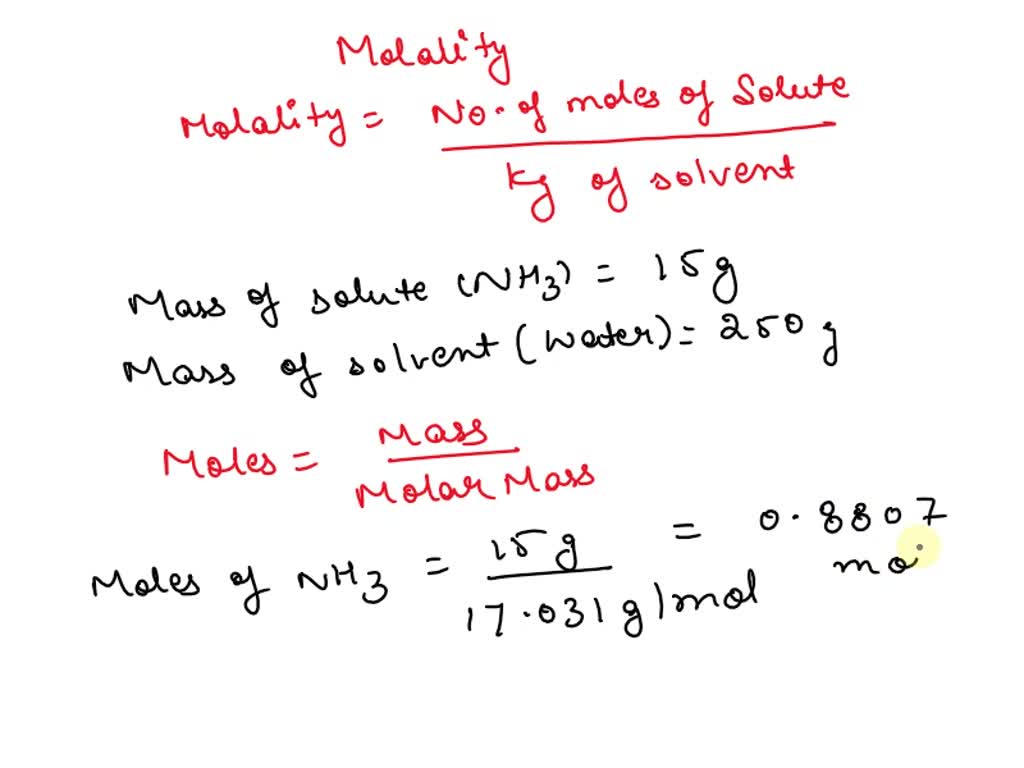 Molality
Molality = No. of moles of Solute
kg of solvent
Mass of solute (NH3) = 15g
Mass of solvent (water) = 250 g
Moles = Mass
Molar Mass
Moles of NH3 = 15g = 0.8807
17.031 g/mol mo